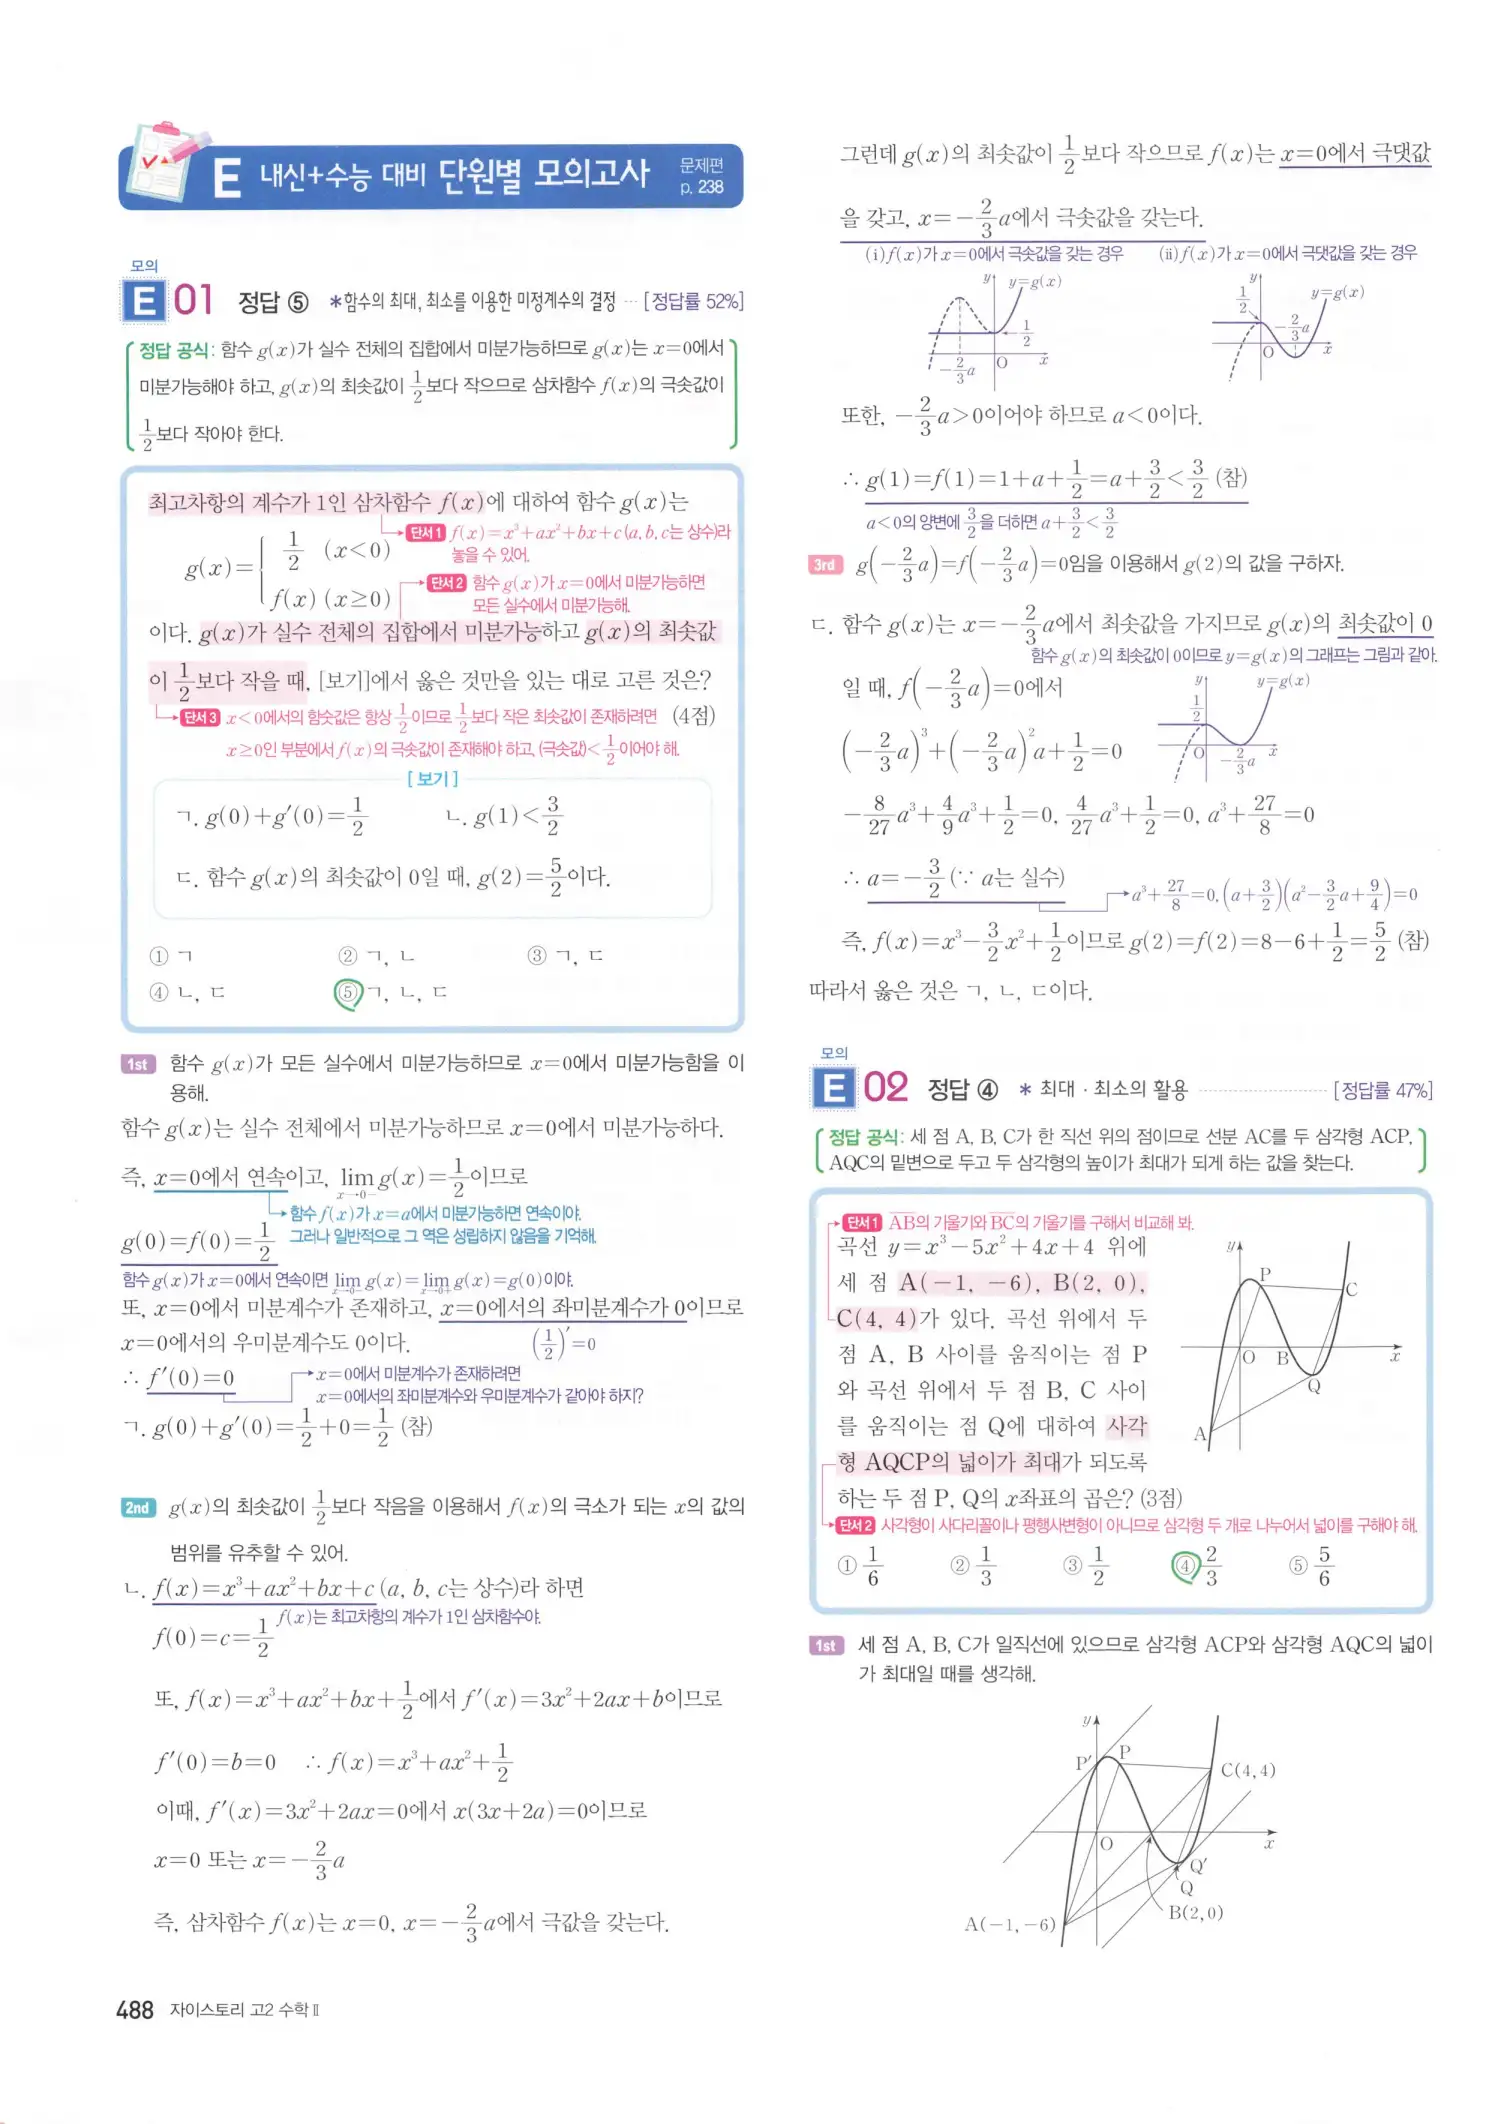 E 내신+수능 대비 단원별 모의고사 문제편 p. 238
모의
E 01 정답 ⑤ *함수의 최대, 최소를 이용한 미정계수의 결정 ··· [정답률 52%]
정답 공식: 함수 g(x)가 실수 전체의 집합에서 미분가능하므로 g(x)는 x=0에서
미분가능해야 하고, g(x)의 최솟값이 1/2보다 작으므로 삼차함수 f(x)의 극솟값이
1/2보다 작아야 한다.
최고차항의 계수가 1인 삼차함수 f(x)에 대하여 함수 g(x)는
단서1 f(x)=x³+ax²+bx+c (a, b, c는 상수)라
놓을 수 있어.
g(x)={ 1/2 (x<0)
f(x) (x≥0)
단서2 함수 g(x)가 x=0에서 미분가능하면
모든 실수에서 미분가능해.
이다. g(x)가 실수 전체의 집합에서 미분가능하고 g(x)의 최솟값
이 1/2보다 작을 때, [보기]에서 옳은 것만을 있는 대로 고른 것은?
단서3 x<0에서의 함숫값은 항상 1/2이므로 1/2보다 작은 최솟값이 존재하려면 (4점)
x≥0인 부분에서 f(x)의 극솟값이 존재해야 하고, (극솟값)<1/2이어야 해.
[보기]
ㄱ. g(0)+g′(0)=1/2 ㄴ. g(1)<3/2
ㄷ. 함수 g(x)의 최솟값이 0일 때, g(2)=5/2이다.
① ㄱ ② ㄱ, ㄴ ③ ㄱ, ㄷ
④ ㄴ, ㄷ ⑤ ㄱ, ㄴ, ㄷ
1st 함수 g(x)가 모든 실수에서 미분가능하므로 x=0에서 미분가능함을 이
용해.
함수 g(x)는 실수 전체에서 미분가능하므로 x=0에서 미분가능하다.
즉, x=0에서 연속이고, lim x→0− g(x)=1/2이므로
함수 f(x)가 x=a에서 미분가능하면 연속이야.
그러나 일반적으로 그 역은 성립하지 않음을 기억해.
g(0)=f(0)=1/2
함수 g(x)가 x=0에서 연속이면 lim x→0− g(x)=lim x→0+ g(x)=g(0)이야.
또, x=0에서 미분계수가 존재하고, x=0에서의 좌미분계수가 0이므로
x=0에서의 우미분계수도 0이다. (1/2)′=0
∴ f′(0)=0
x=0에서 미분계수가 존재하려면
x=0에서의 좌미분계수와 우미분계수가 같아야 하지?
ㄱ. g(0)+g′(0)=1/2+0=1/2 (참)
2nd g(x)의 최솟값이 1/2보다 작음을 이용해서 f(x)의 극소가 되는 x의 값의
범위를 유추할 수 있어.
ㄴ. f(x)=x³+ax²+bx+c (a, b, c는 상수)라 하면
f(x)는 최고차항의 계수가 1인 삼차함수야.
f(0)=c=1/2
또, f(x)=x³+ax²+bx+1/2에서 f′(x)=3x²+2ax+b이므로
f′(0)=b=0 ∴ f(x)=x³+ax²+1/2
이때, f′(x)=3x²+2ax=0에서 x(3x+2a)=0이므로
x=0 또는 x=−2/3a
즉, 삼차함수 f(x)는 x=0, x=−2/3a에서 극값을 갖는다.
488 자이스토리 고2 수학 Ⅱ
그런데 g(x)의 최솟값이 1/2보다 작으므로 f(x)는 x=0에서 극댓값
을 갖고, x=−2/3a에서 극솟값을 갖는다.
(i) f(x)가 x=0에서 극솟값을 갖는 경우 (ii) f(x)가 x=0에서 극댓값을 갖는 경우
y y=g(x) 1/2 −2/3a O x
y y=g(x) 1/2 −2/3a O x
또한, −2/3a>0이어야 하므로 a<0이다.
∴ g(1)=f(1)=1+a+1/2=a+3/2<3/2 (참)
a<0의 양변에 3/2을 더하면 a+3/2<3/2
3rd g(−2/3a)=f(−2/3a)=0임을 이용해서 g(2)의 값을 구하자.
ㄷ. 함수 g(x)는 x=−2/3a에서 최솟값을 가지므로 g(x)의 최솟값이 0
함수 g(x)의 최솟값이 0이므로 y=g(x)의 그래프는 그림과 같아.
일 때, f(−2/3a)=0에서
y y=g(x) 1/2 O −2/3a x
(−2/3a)³+(−2/3a)²a+1/2=0
−8/27a³+4/9a³+1/2=0, 4/27a³+1/2=0, a³+27/8=0
∴ a=−3/2 (∵ a는 실수)
a³+27/8=0, (a+3/2)(a²−3/2a+9/4)=0
즉, f(x)=x³−3/2x²+1/2이므로 g(2)=f(2)=8−6+1/2=5/2 (참)
따라서 옳은 것은 ㄱ, ㄴ, ㄷ이다.
모의
E 02 정답 ④ * 최대 · 최소의 활용 ············ [정답률 47%]
정답 공식: 세 점 A, B, C가 한 직선 위의 점이므로 선분 AC를 두 삼각형 ACP,
AQC의 밑변으로 두고 두 삼각형의 높이가 최대가 되게 하는 값을 찾는다.
단서1 AB의 기울기와 BC의 기울기를 구해서 비교해 봐.
곡선 y=x³−5x²+4x+4 위에
세 점 A(−1, −6), B(2, 0),
C(4, 4)가 있다. 곡선 위에서 두
점 A, B 사이를 움직이는 점 P
와 곡선 위에서 두 점 B, C 사이
를 움직이는 점 Q에 대하여 사각
형 AQCP의 넓이가 최대가 되도록
하는 두 점 P, Q의 x좌표의 곱은? (3점)
y P C O B x Q A
단서2 사각형이 사다리꼴이나 평행사변형이 아니므로 삼각형 두 개로 나누어서 넓이를 구해야 해.
① 1/6 ② 1/3 ③ 1/2 ④ 2/3 ⑤ 5/6
1st 세 점 A, B, C가 일직선에 있으므로 삼각형 ACP와 삼각형 AQC의 넓이
가 최대일 때를 생각해.
y
P′ P
C(4, 4)
O x
Q′
Q
B(2, 0)
A(−1, −6)